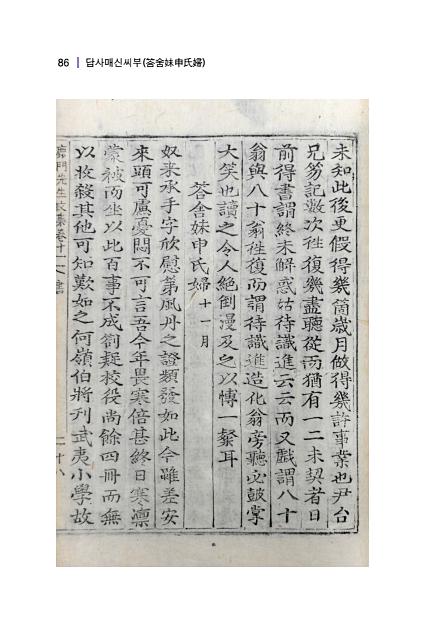 86 | 답사매신씨부(答舍妹申氏婦)
未知此後更假得幾箇歲月做得幾許事業也尹台
兄旁記數次往復幾盡聽從而猶有一二未契者日
前得書謂終未解惑姑待識進云云而又戱謂八十
翁與八十翁往復而謂待識進造化翁旁聽必鼓掌
大笑也讀之令人絶倒漫及之以博一粲耳
答舍妹申氏婦 十一月
奴來承手字欣慰第風丹之證頻發如此今雖差安
來頭可慮憂悶不可言吾今年畏寒倍甚終日寒凜
蒙被而坐以此百事不成箚疑校役尚餘四冊而無
以收殺其他可知歎如之何嶺伯將刊武夷小學故
先生文集卷十一 書
二十八